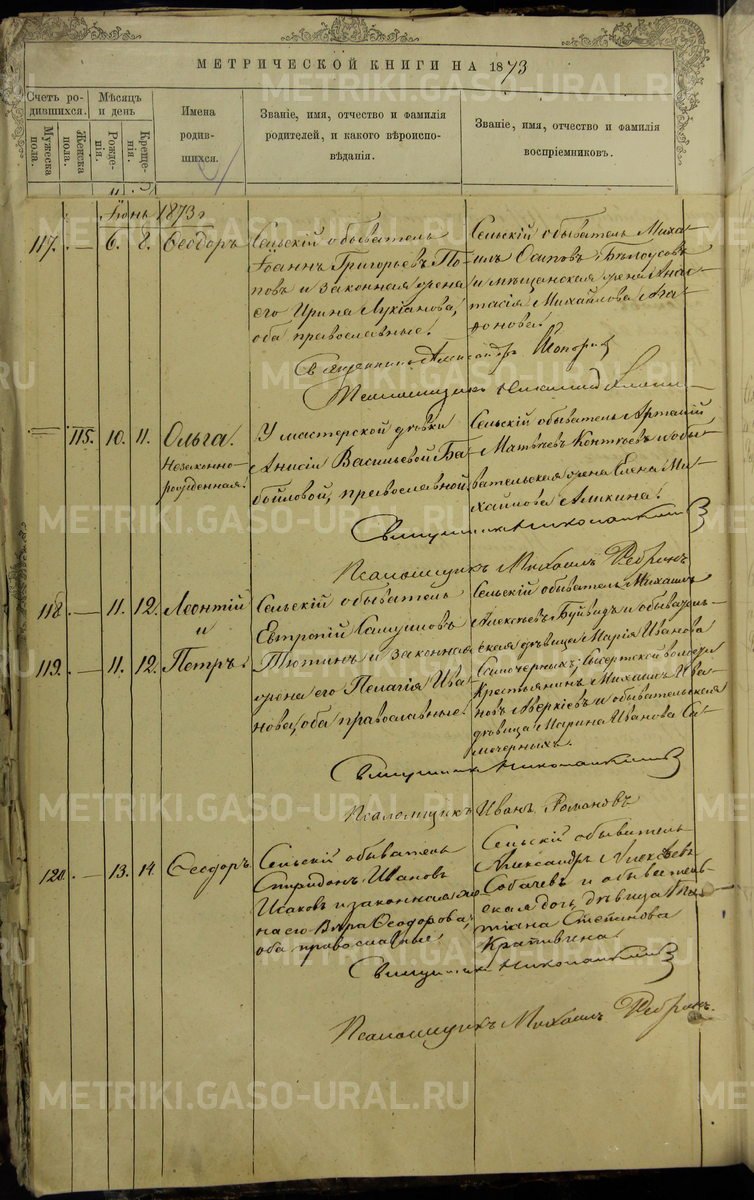 МЕТРИЧЕСКОЙ КНИГИ НА 1873
Счетъ родившихся.
Мужеска пола.
Женска пола.
Мѣсяцъ и день
Рожденія.
Крещенія.
Имена родившихся.
Званіе, имя, отчество и фамилія родителей, и какого вѣроисповѣданія.
Званіе, имя, отчество и фамилія воспріемниковъ.
Іюнь 1873 г
117. — 6. 8. Ѳеодоръ
Сельскій обыватель
Іоаннъ Григорьевъ По-
повъ и законная жена
его Ирина Лукіанова,
оба православные.
Сельскій обыватель Миха-
илъ Осиповъ Бѣлоусовъ
и мѣщанская жена Анас-
тасія Михайлова
Священникъ Александръ
Псаломщикъ
— 115. 10. 11. Ольга.
Незаконно-
рожденная.
У мастерской дѣвки
Анисіи Васильевой Ба-
бойловой, православной.
Сельскій обыватель
Матвѣевъ и обы-
вательская жена Елена Ми-
хайлова Аликина.
Священникъ
Псаломщикъ Михаилъ Ребринъ
118. — 11. 12. Леонтій
и
119. — 11. 12. Петръ.
Сельскій обыватель
Евтропій Самуиловъ
Тютинъ и законная
жена его Пелагія Ива-
нова, оба православные.
Сельскій обыватель Михаилъ
Алексѣевъ и обыватель-
ская дѣвица Марія Иванова
Самочерныхъ; Сысертской волости
Крестьянинъ Михаилъ Ива-
новъ Аверкіевъ и обывательская
дѣвица Марина Иванова Са-
мочерныхъ.
Священникъ
Псаломщикъ Иванъ Романовъ
120. — 13. 14. Ѳеодоръ.
Сельскій обыватель
Спиридонъ Ивановъ
Исаковъ и законная же-
на его Вѣра Ѳеодорова,
оба православные.
Сельскій обыватель
Александръ Алексѣевъ
Собачевъ и обыватель-
ская дочь дѣвица Та-
тіана Степанова
Крапивина.
Священникъ
Псаломщикъ Михаилъ Ребринъ.
METRIKI.GASO-URAL.RU